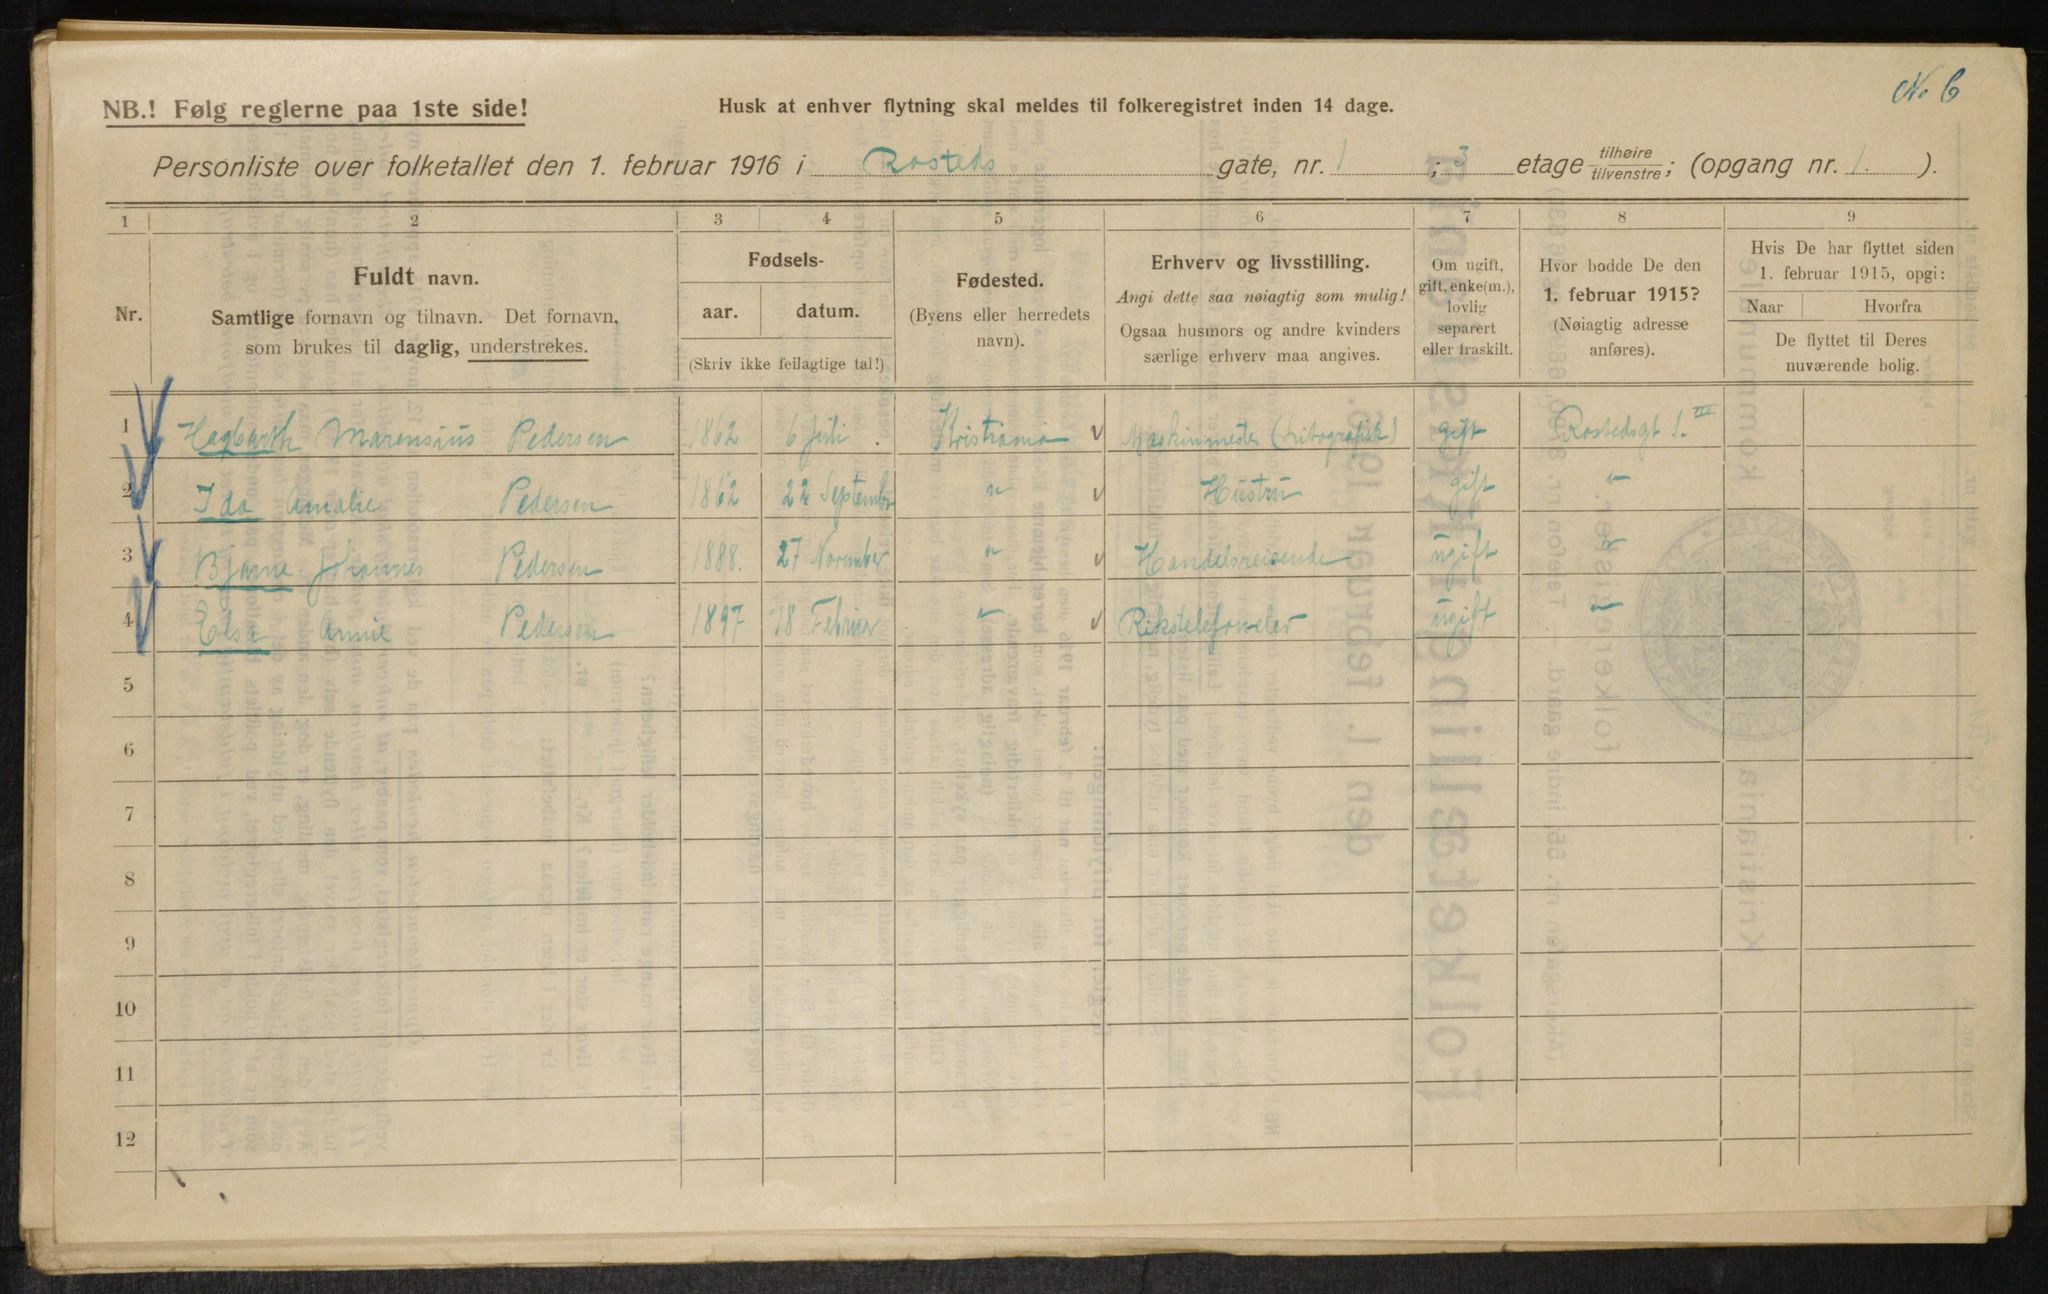 No 6
NB.! Følg reglerne paa 1ste side!
Husk at enhver flytning skal meldes til folkeregistret inden 14 dage.
Personliste over folketallet den 1. februar 1916 i Rosteds gate, nr. 1 ; 3 etage tilhøire/tilvenstre; (opgang nr. 1. ).
1 2 3 4 5 6 7 8 9
Nr.
Fuldt navn.
Samtlige fornavn og tilnavn. Det fornavn,
som brukes til daglig, understrekes.
Fødsels-
aar. datum.
(Skriv ikke feilagtige tal!)
Fødested.
(Byens eller herredets
navn).
Erhverv og livsstilling.
Angi dette saa nøiagtig som mulig!
Ogsaa husmors og andre kvinders
særlige erhverv maa angives.
Om ugift,
gift, enke(m.),
lovlig
separert
eller fraskilt.
Hvor bodde De den
1. februar 1915?
(Nøiagtig adresse
anføres).
Hvis De har flyttet siden
1. februar 1915, opgi:
Naar Hvorfra
De flyttet til Deres
nuværende bolig.
1 Hagbarth Marensius Pedersen 1862 6 Juli . Kristiania Maskinmester (Litografisk) gift Rostedsgt 1. III
2 Ida Amalie Pedersen 1862 22 September " Hustru gift "
3 Bjarne Johannes Pedersen 1888. 27 November " Handelsreisende ugift "
4 Elsa Annie Pedersen 1897 18 Februar " ugift "
5
6
7
8
9
10
11
12